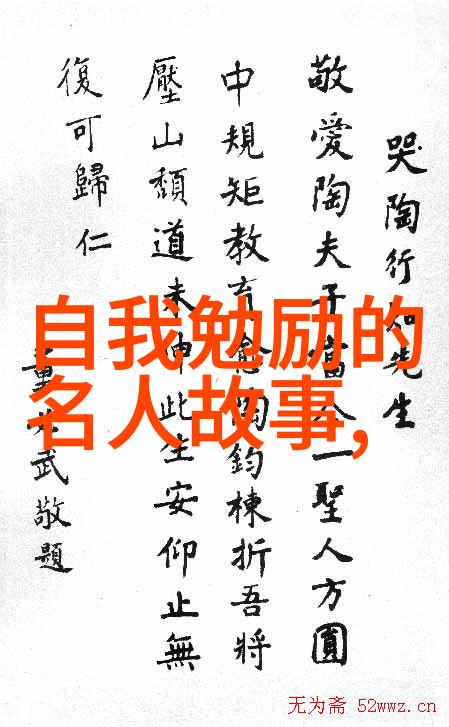 哭陶行知先生
敬愛陶夫子當今一聖人方圓
中規矩教育愈陶鈞棟折吾將
壓山頹道未伸此生安仰止無
復可歸仁
董必武敬題
自我勉励的
名人故事,
无为斋 52wwz.cn